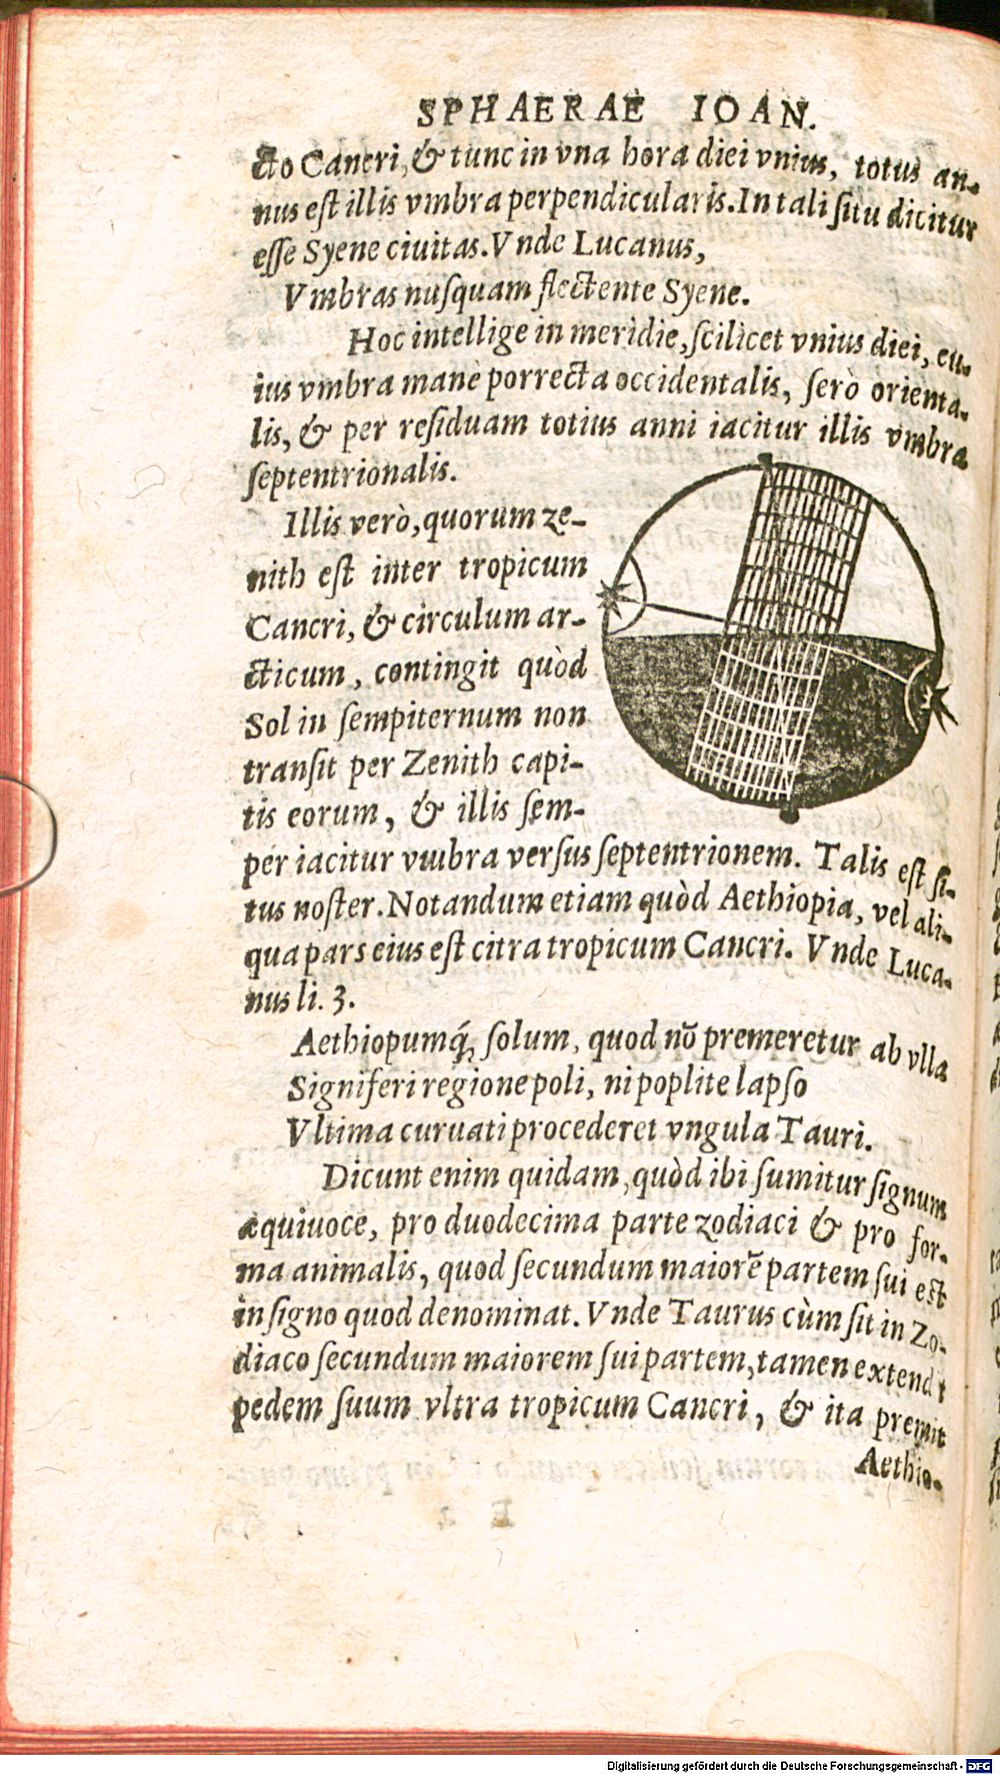 SPHAERAE IOAN.
cto Cancri, & tunc in vna hora diei vnius, totus an-
nus eſt illis vmbra perpendicularis. In tali ſitu dicitur
eſſe Syene ciuitas. Vnde Lucanus,
Vmbras nuſquam flectente Syene.
Hoc intellige in meridie, ſcilicet vnius diei, cu-
ius vmbra manè porrecta occidentalis, ſerò orienta-
lis, & per reſiduam totius anni iacitur illis vmbra
ſeptentrionalis.
Illis verò, quorum ze-
nith eſt inter tropicum
Cancri, & circulum ar-
cticum, contingit quòd
Sol in ſempiternum non
tranſit per Zenith capi-
tis eorum, & illis ſem-
per iacitur vmbra verſus ſeptentrionem. Talis eſt ſi-
tus noſter. Notandum etiam quòd Aethiopia, vel ali-
qua pars eius eſt citra tropicum Cancri. Vnde Luca-
nus li. 3.
Aethiopumq́; ſolum, quod nō premeretur ab vlla
Signiferi regione poli, ni poplite lapſo
Vltima curuati procederet vngula Tauri.
Dicunt enim quidam, quòd ibi ſumitur ſignum
æquiuoce, pro duodecima parte zodiaci & pro for-
ma animalis, quod ſecundum maiorē partem ſui eſt
in ſigno quod denominat. Vnde Taurus cùm ſit in Zo-
diaco ſecundum maiorem ſui partem, tamen extendit
pedem ſuum vltra tropicum Cancri, & ita premit
Aethio-
Digitalisierung gefördert durch die Deutsche Forschungsgemeinschaft - DFG